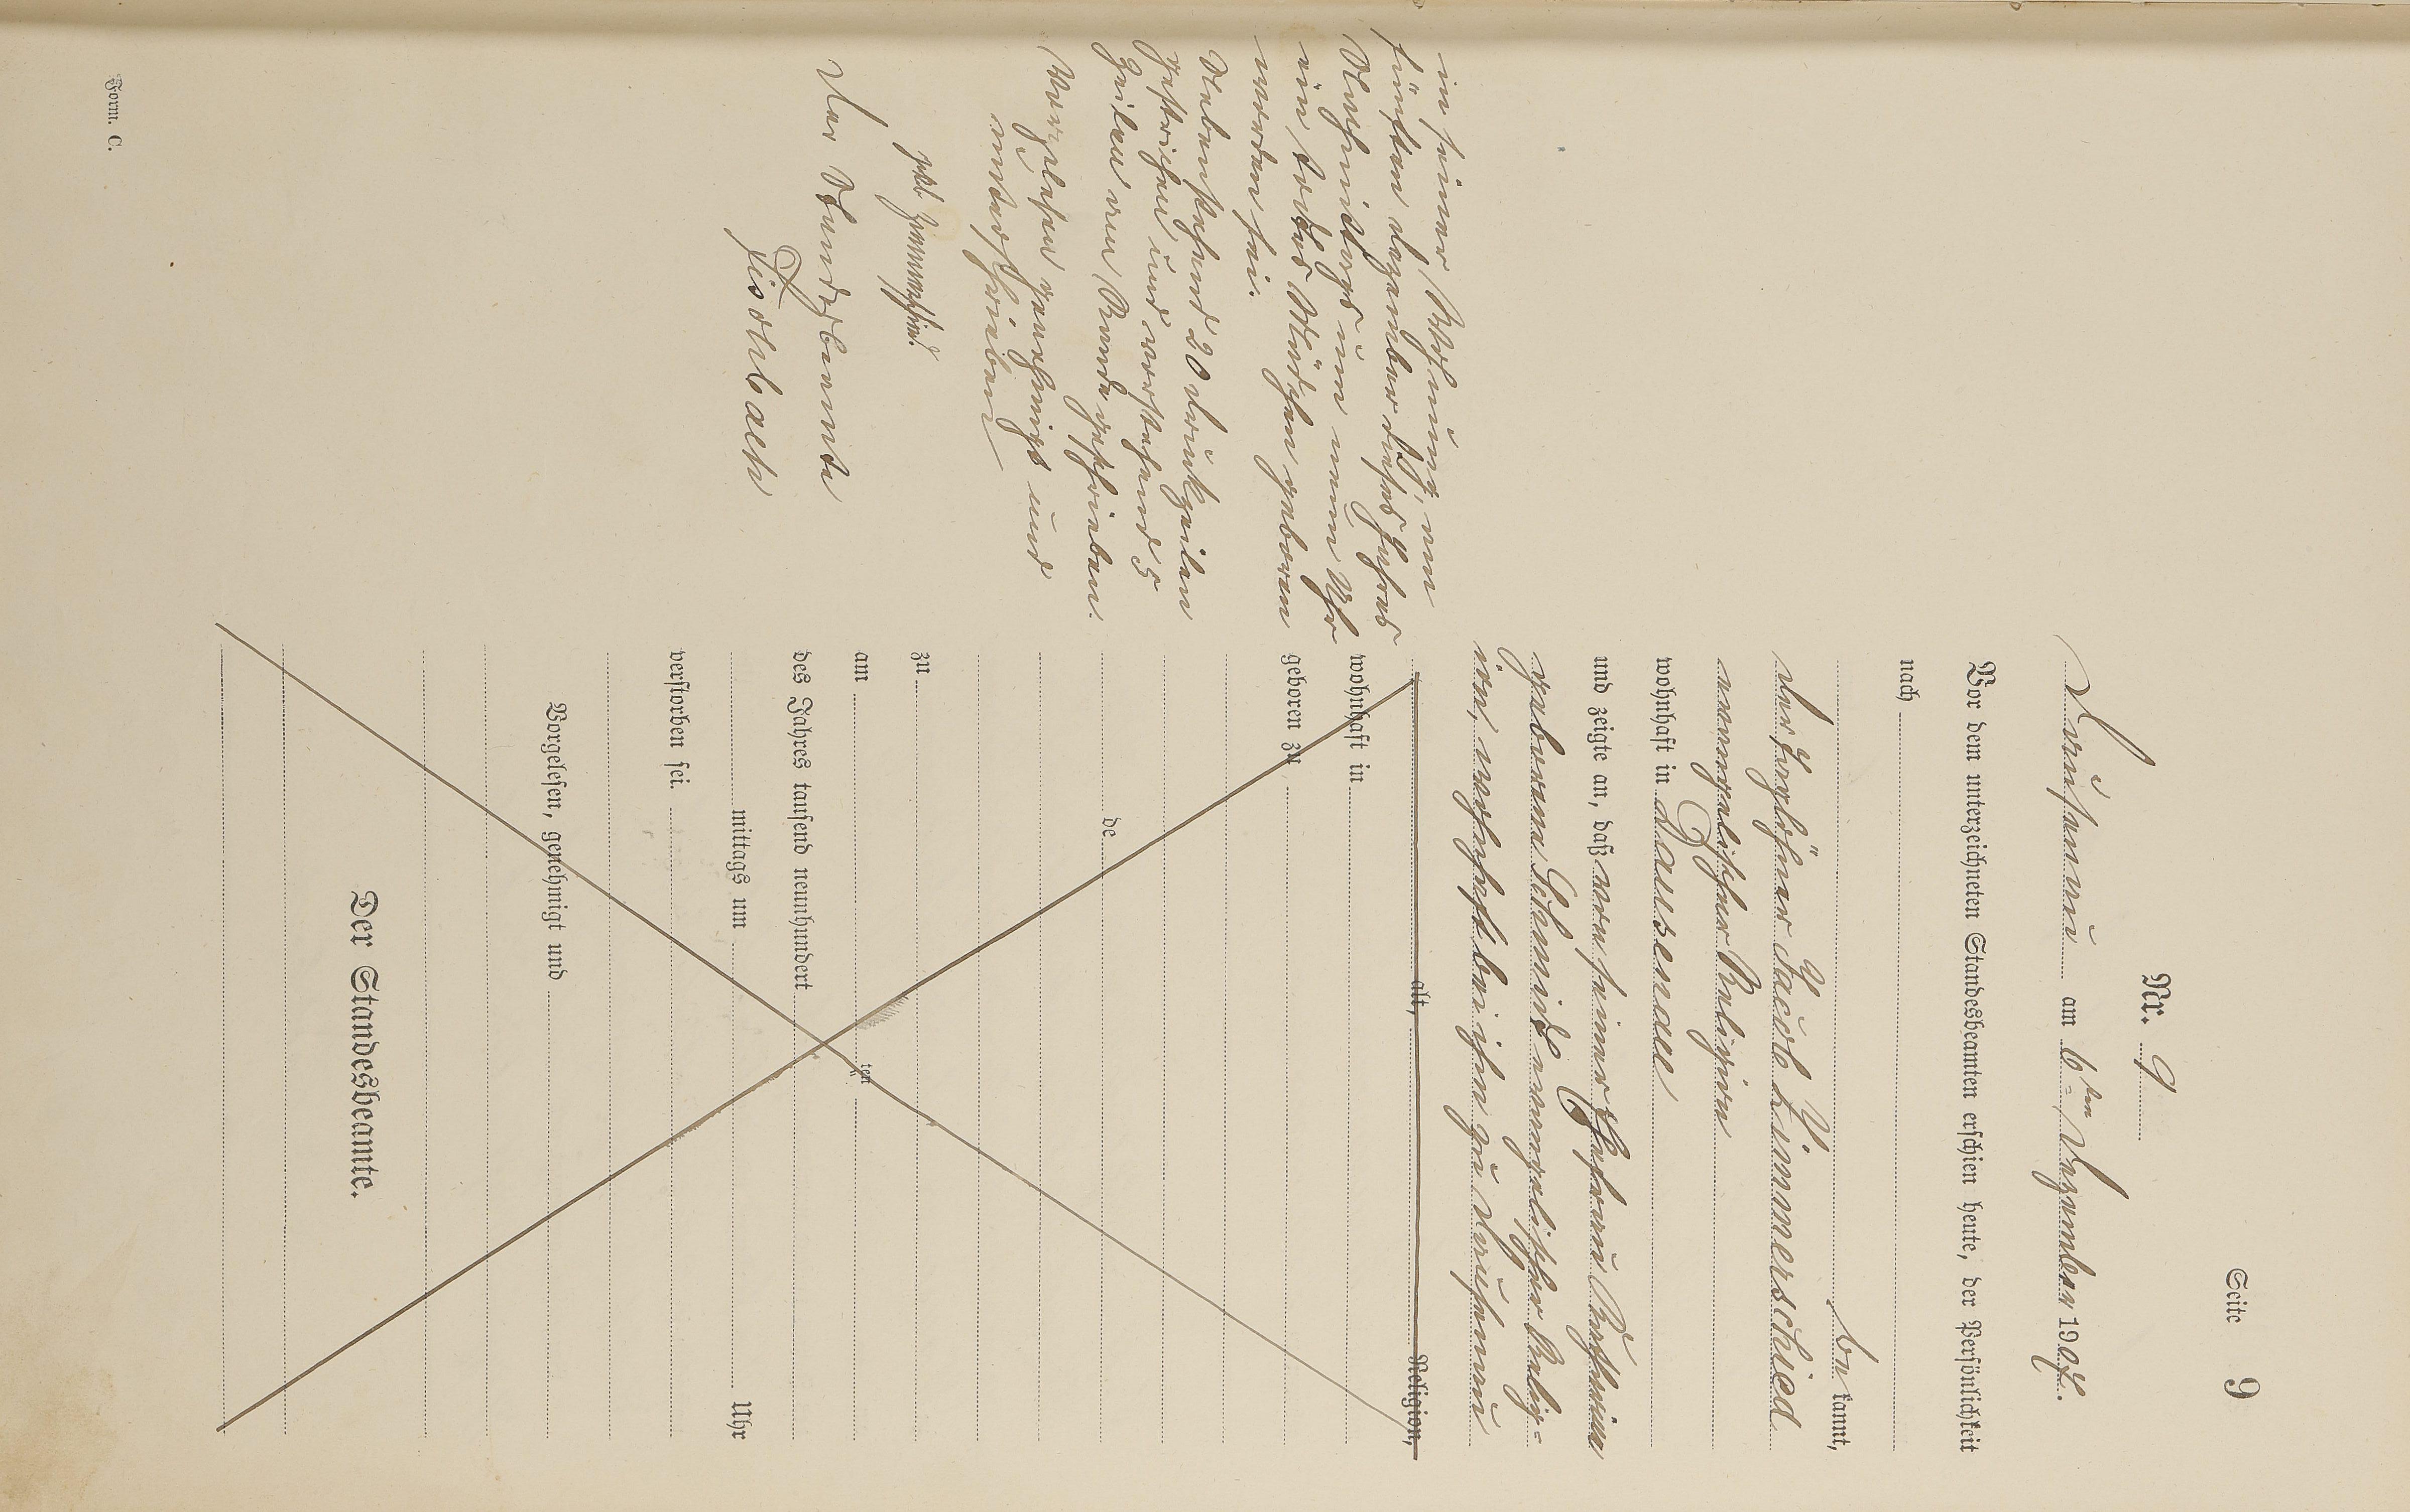 Seite 9
Nr. 9
Dausenau am 6ten Dezember 1907.
Vor dem unterzeichneten Standesbeamten erschien heute, der Persönlichkeit
nach
be kannt,
der Taglöhner Jacob Zimmerschied
evangelischer Religion
wohnhaft in Dausenau
und zeigte an, daß von seiner Ehefrau
geborenen Schmidt evangelischer Relig-
ion, wohnhaft bei ihm zu Dausenau
alt, Religion,
wohnhaft in
geboren zu
de
zu
am ten
des Jahres tausend neunhundert
mittags um Uhr
verstorben sei.
Vorgelesen, genehmigt und
Der Standesbeamte.
in seiner Wohnung, am
fünften Dezember dieses Jahres
Nachmittags um neun Uhr
ein totes Mädchen geboren
worden sei.
Nebenstehend 20 Druckzeilen
gestrichen und vorstehend 5
Zeilen am Rande geschrieben.
Vorgelesen genehmigt und
unterschrieben
Jakob Zimmerschied
Der Standesbeamte
Fischbach
Form. C.